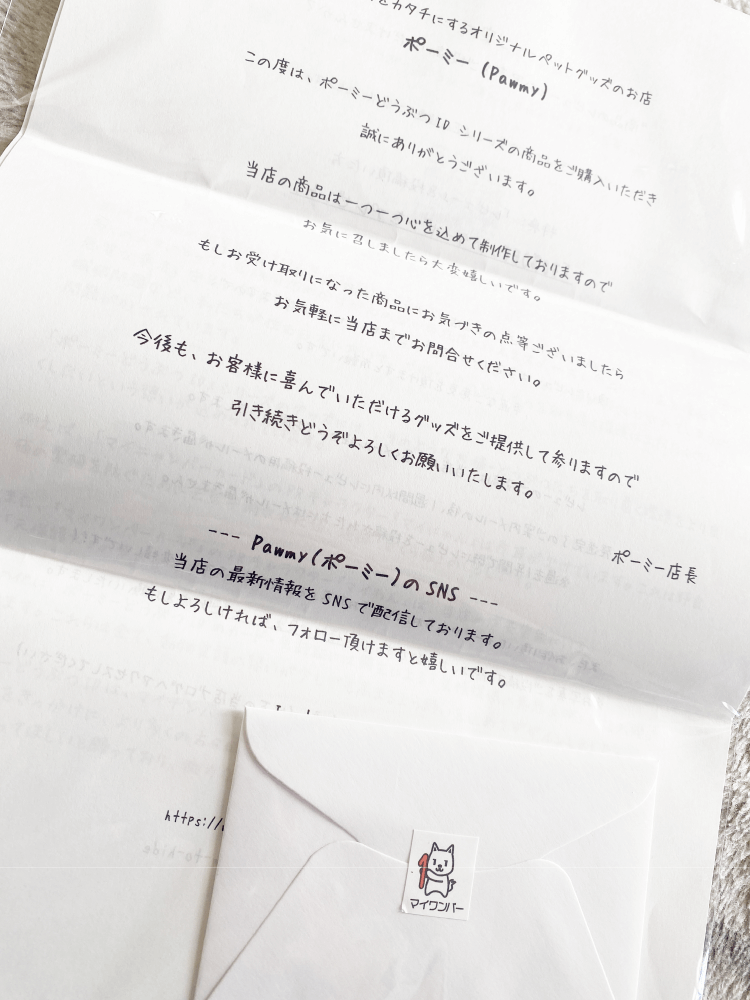 をカタチにするオリジナルペットグッズのお店
ポーミー (Pawmy)
この度は、ポーミーどうぶつ ID シリーズの商品をご購入いただき
誠にありがとうございます。
当店の商品は一つ一つ心を込めて制作しておりますので
お気に召しましたら大変嬉しいです。
もしお受け取りになった商品にお気づきの点等ございましたら
お気軽に当店までお問合せください。
今後も、お客様に喜んでいただけるグッズをご提供して参りますので
引き続きどうぞよろしくお願いいたします。
ポーミー店長
--- Pawmy(ポーミー)の SNS ---
当店の最新情報を SNS で配信しております。
もしよろしければ、フォロー頂けますと嬉しいです。
https://
マイワンバー